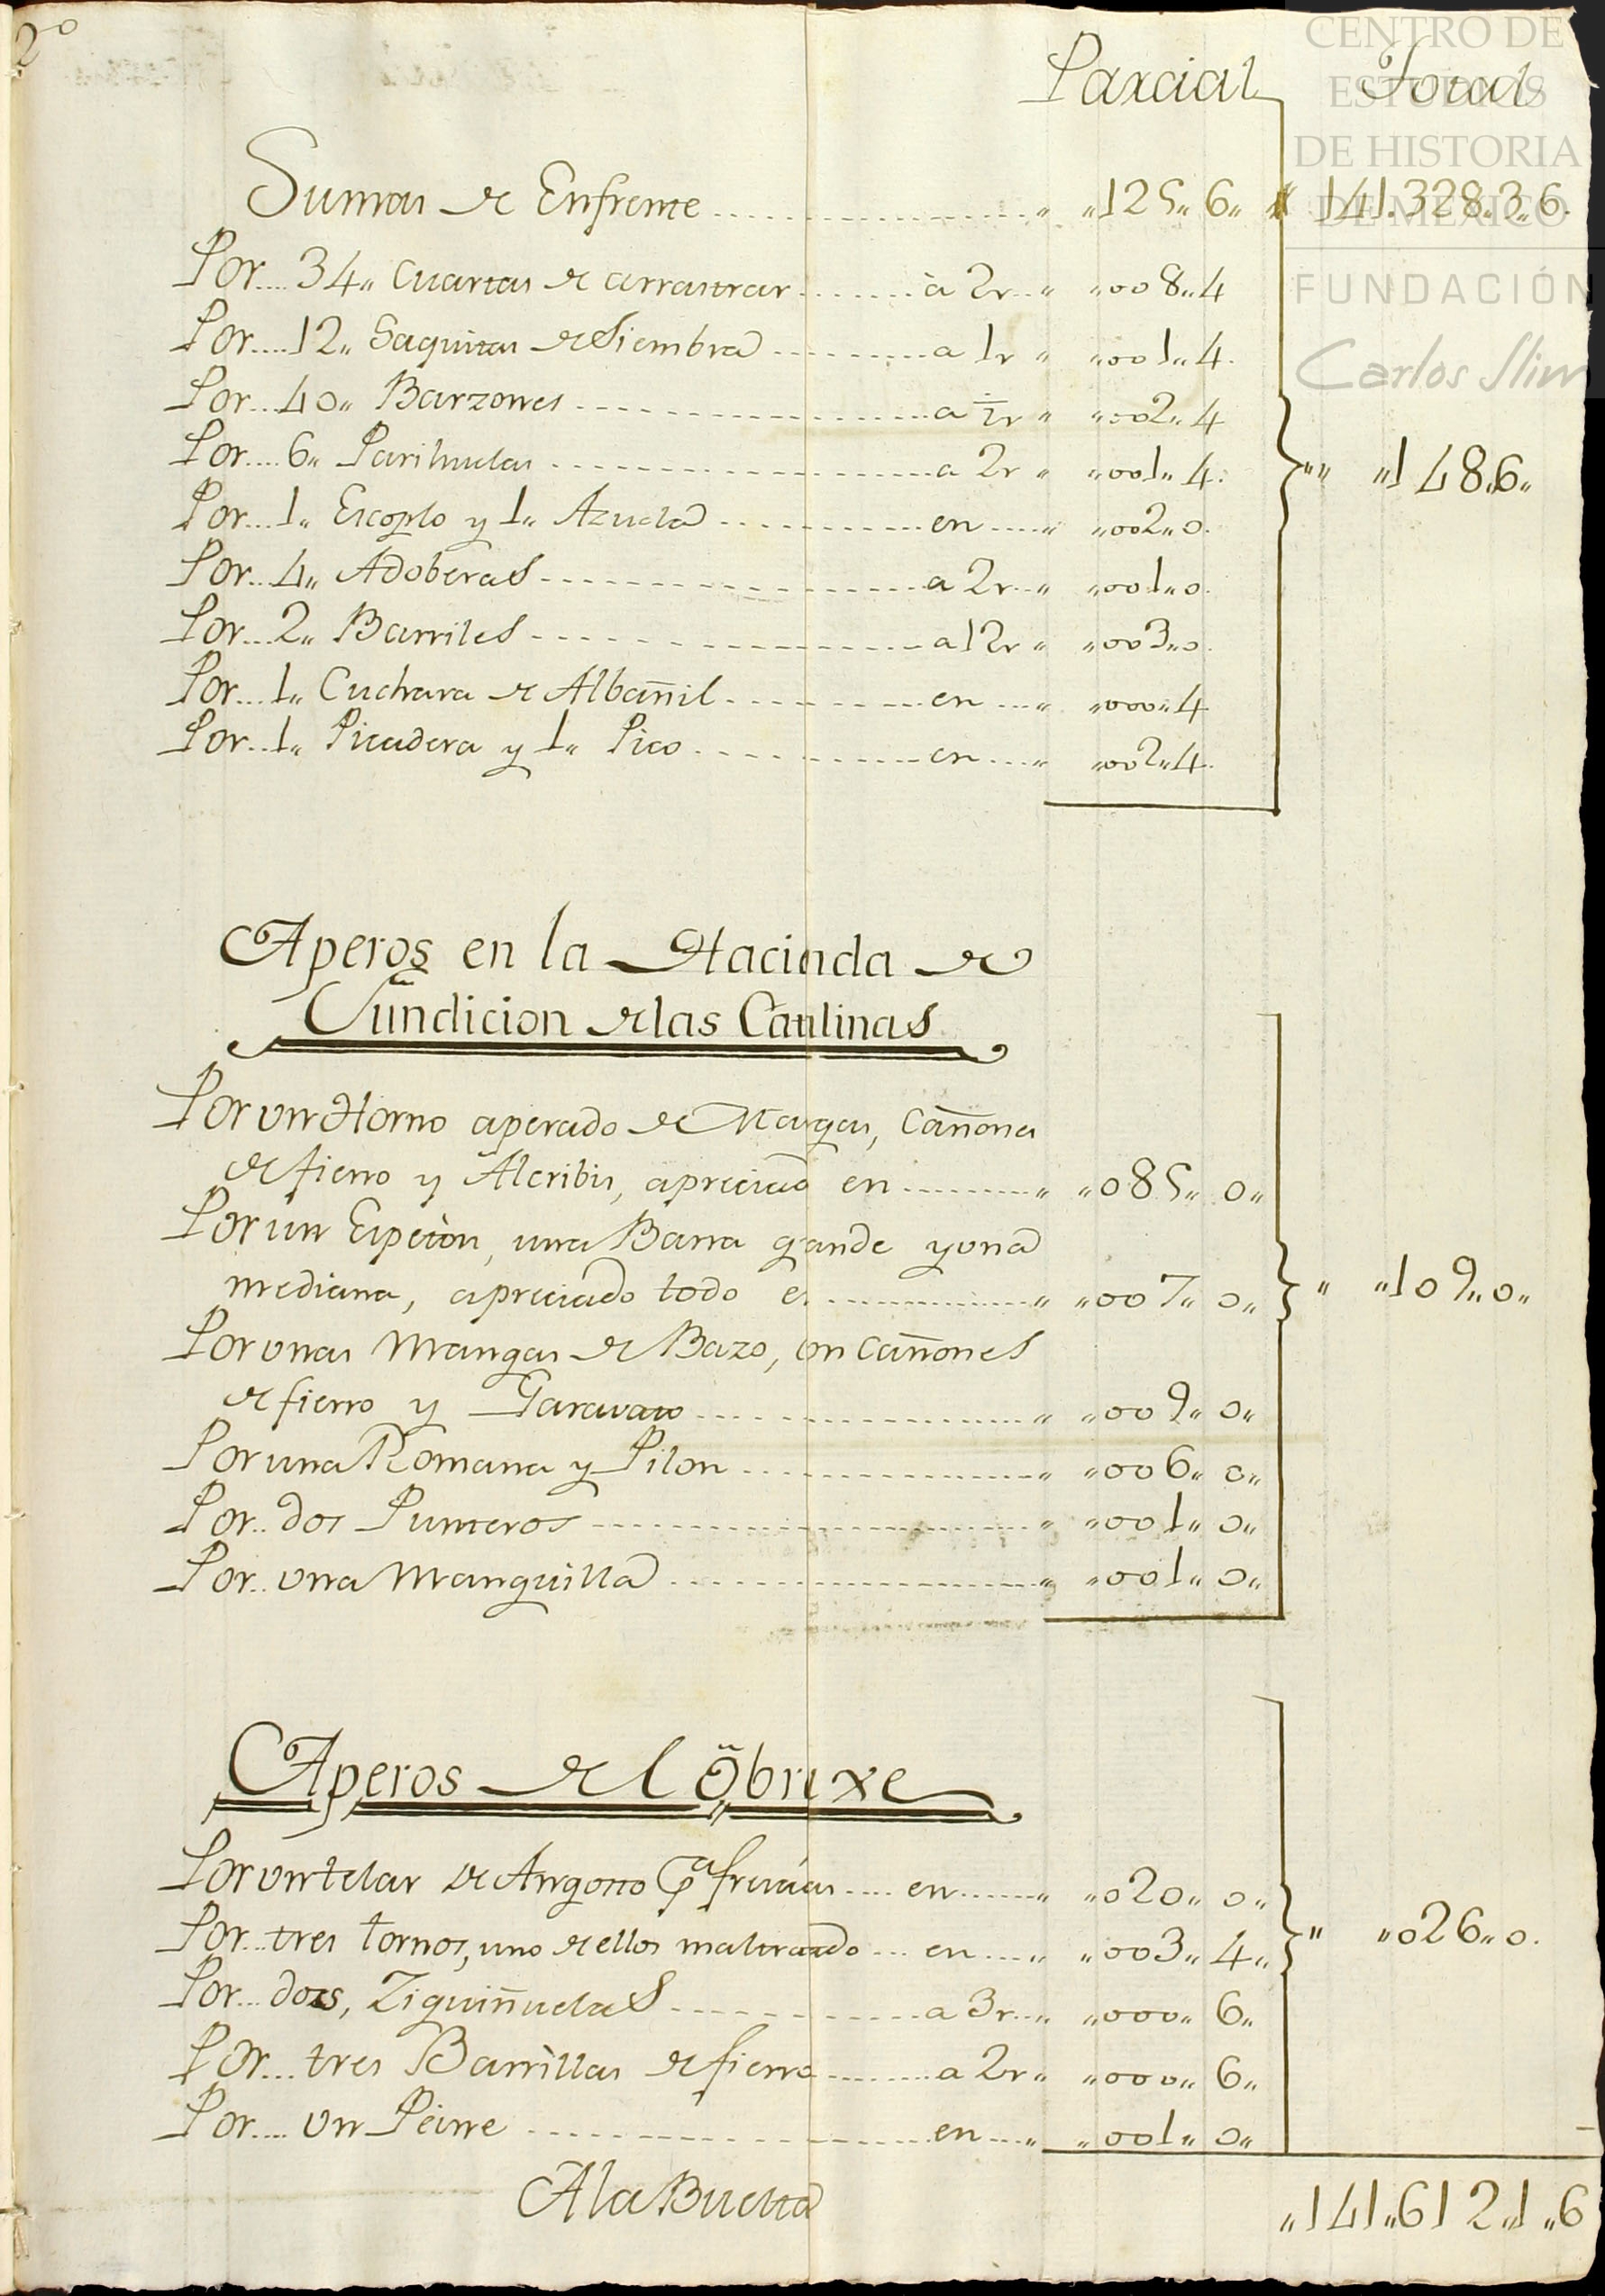 2º
Parcial Total
Sumas de Enfrente ,, ,,125,, 6,, 141.328,,3,,6.
Por 34,, Cuartas de arrastrar a 2r ,, ,,008,,4
Por 12,, Saquitas de Siembra a 1r ,, ,,001,,4.
Por 40,, Barzones a ½r ,, ,,002,,4
Por 6,, Parihuelas a 2r ,, ,,001,,4. ,,,, ,,148,,6,,
Por 1,, Escoplo y 1,, Azuela en ,, ,,002,,0.
Por 4,, Adoberas a 2r ,, ,,001,,0.
Por 2,, Barriles a 12r ,, ,,003,,0.
Por 1,, Cuchara de Albañil en ,, ,,000,,4
Por 1,, Picadera y 1,, Pico en ,, ,,002,,4.
Aperos en la Hacinda de
Fundicion de las Catalinas
Por un Horno aperado de Mangas, Cañones
de fierro y Alcribis, apreciado en ,, ,,085,, 0,,
Por un Espeton, una Barra grande y una
mediana, apreciado todo en ,, ,,007,, 0,, ,, ,,109,,0,,
Por unas Mangas de Bazo, con Cañones
de fierro y Garavato ,, ,,009,, 0,,
Por una Romana y Pilon ,, ,,006,, 0,,
Por dos Punteros ,, ,,001,, 0,,
Por una Manguilla ,, ,,001,, 0,,
Aperos del Obraxe
Por un telar de Angosto pª frezadas en ,, ,,020,, 0,,
Por tres tornos, uno de ellos maltratado en ,, ,,003,, 4,, ,, ,,026,,0.
Por dos, Zigüiñuelas a 3r ,, ,,000,, 6,,
Por tres Barrillas de fierro a 2r ,, ,,000,, 6,,
Por un Peine en ,, ,,001,, 0,,
A la Buelta ,,141,,612,,1,,6
CENTRO DE
ESTUDIOS
DE HISTORIA
DE MÉXICO
FUNDACIÓN
Carlos Slim